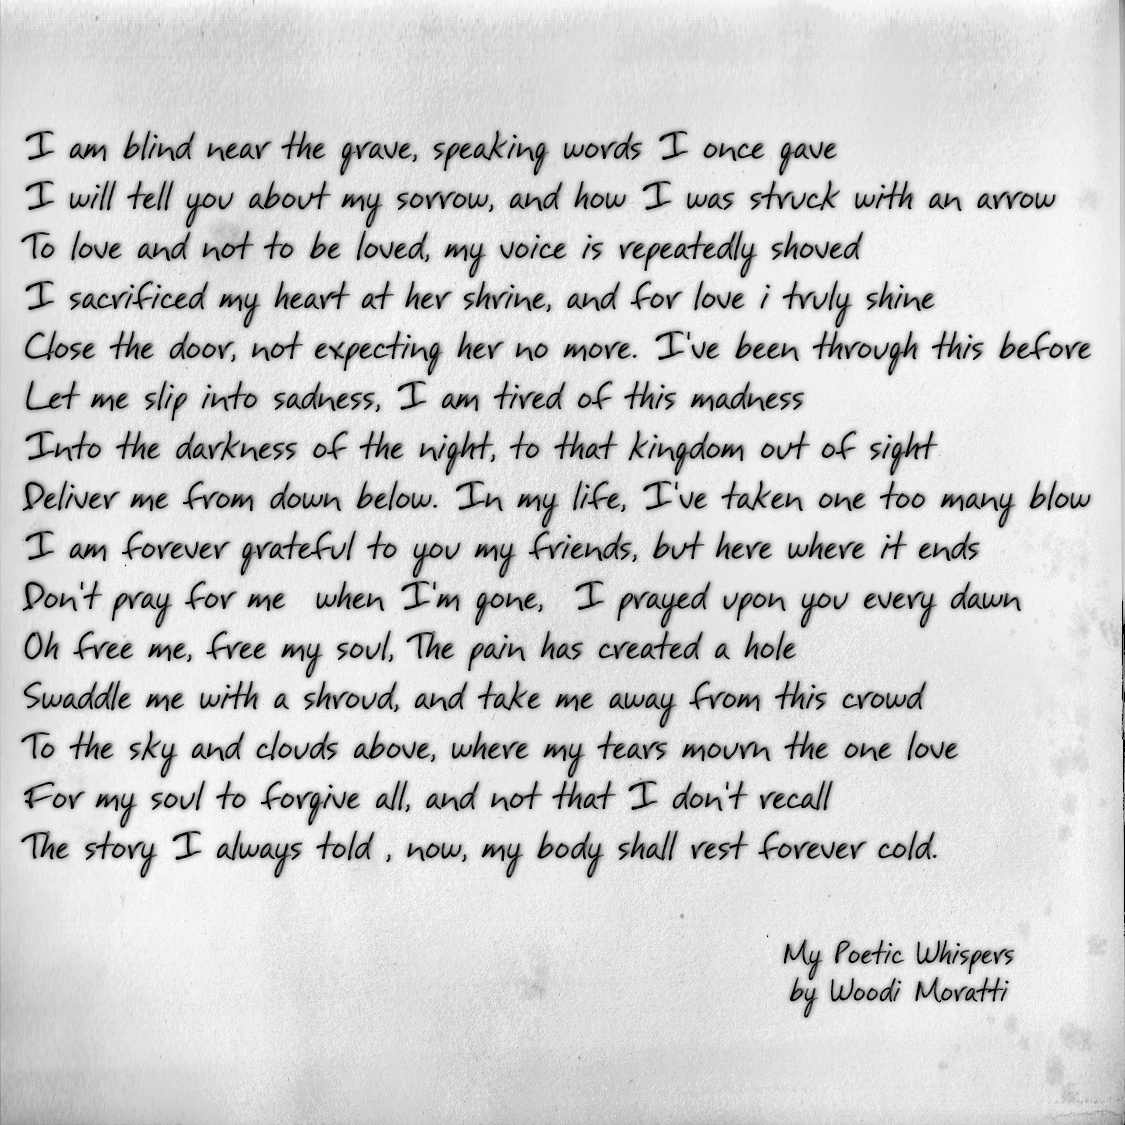 I am blind near the grave, speaking words I once gave
I will tell you about my sorrow, and how I was struck with an arrow
To love and not to be loved, my voice is repeatedly shoved
I sacrificed my heart at her shrine, and for love i truly shine
Close the door, not expecting her no more. I've been through this before
Let me slip into sadness, I am tired of this madness
Into the darkness of the night, to that kingdom out of sight
Deliver me from down below. In my life, I've taken one too many blow
I am forever grateful to you my friends, but here where it ends
Don't pray for me when I'm gone, I prayed upon you every dawn
Oh free me, free my soul, The pain has created a hole
Swaddle me with a shroud, and take me away from this crowd
To the sky and clouds above, where my tears mourn the one love
For my soul to forgive all, and not that I don't recall
The story I always told , now, my body shall rest forever cold.
My Poetic Whispers
by Woodi Moratti